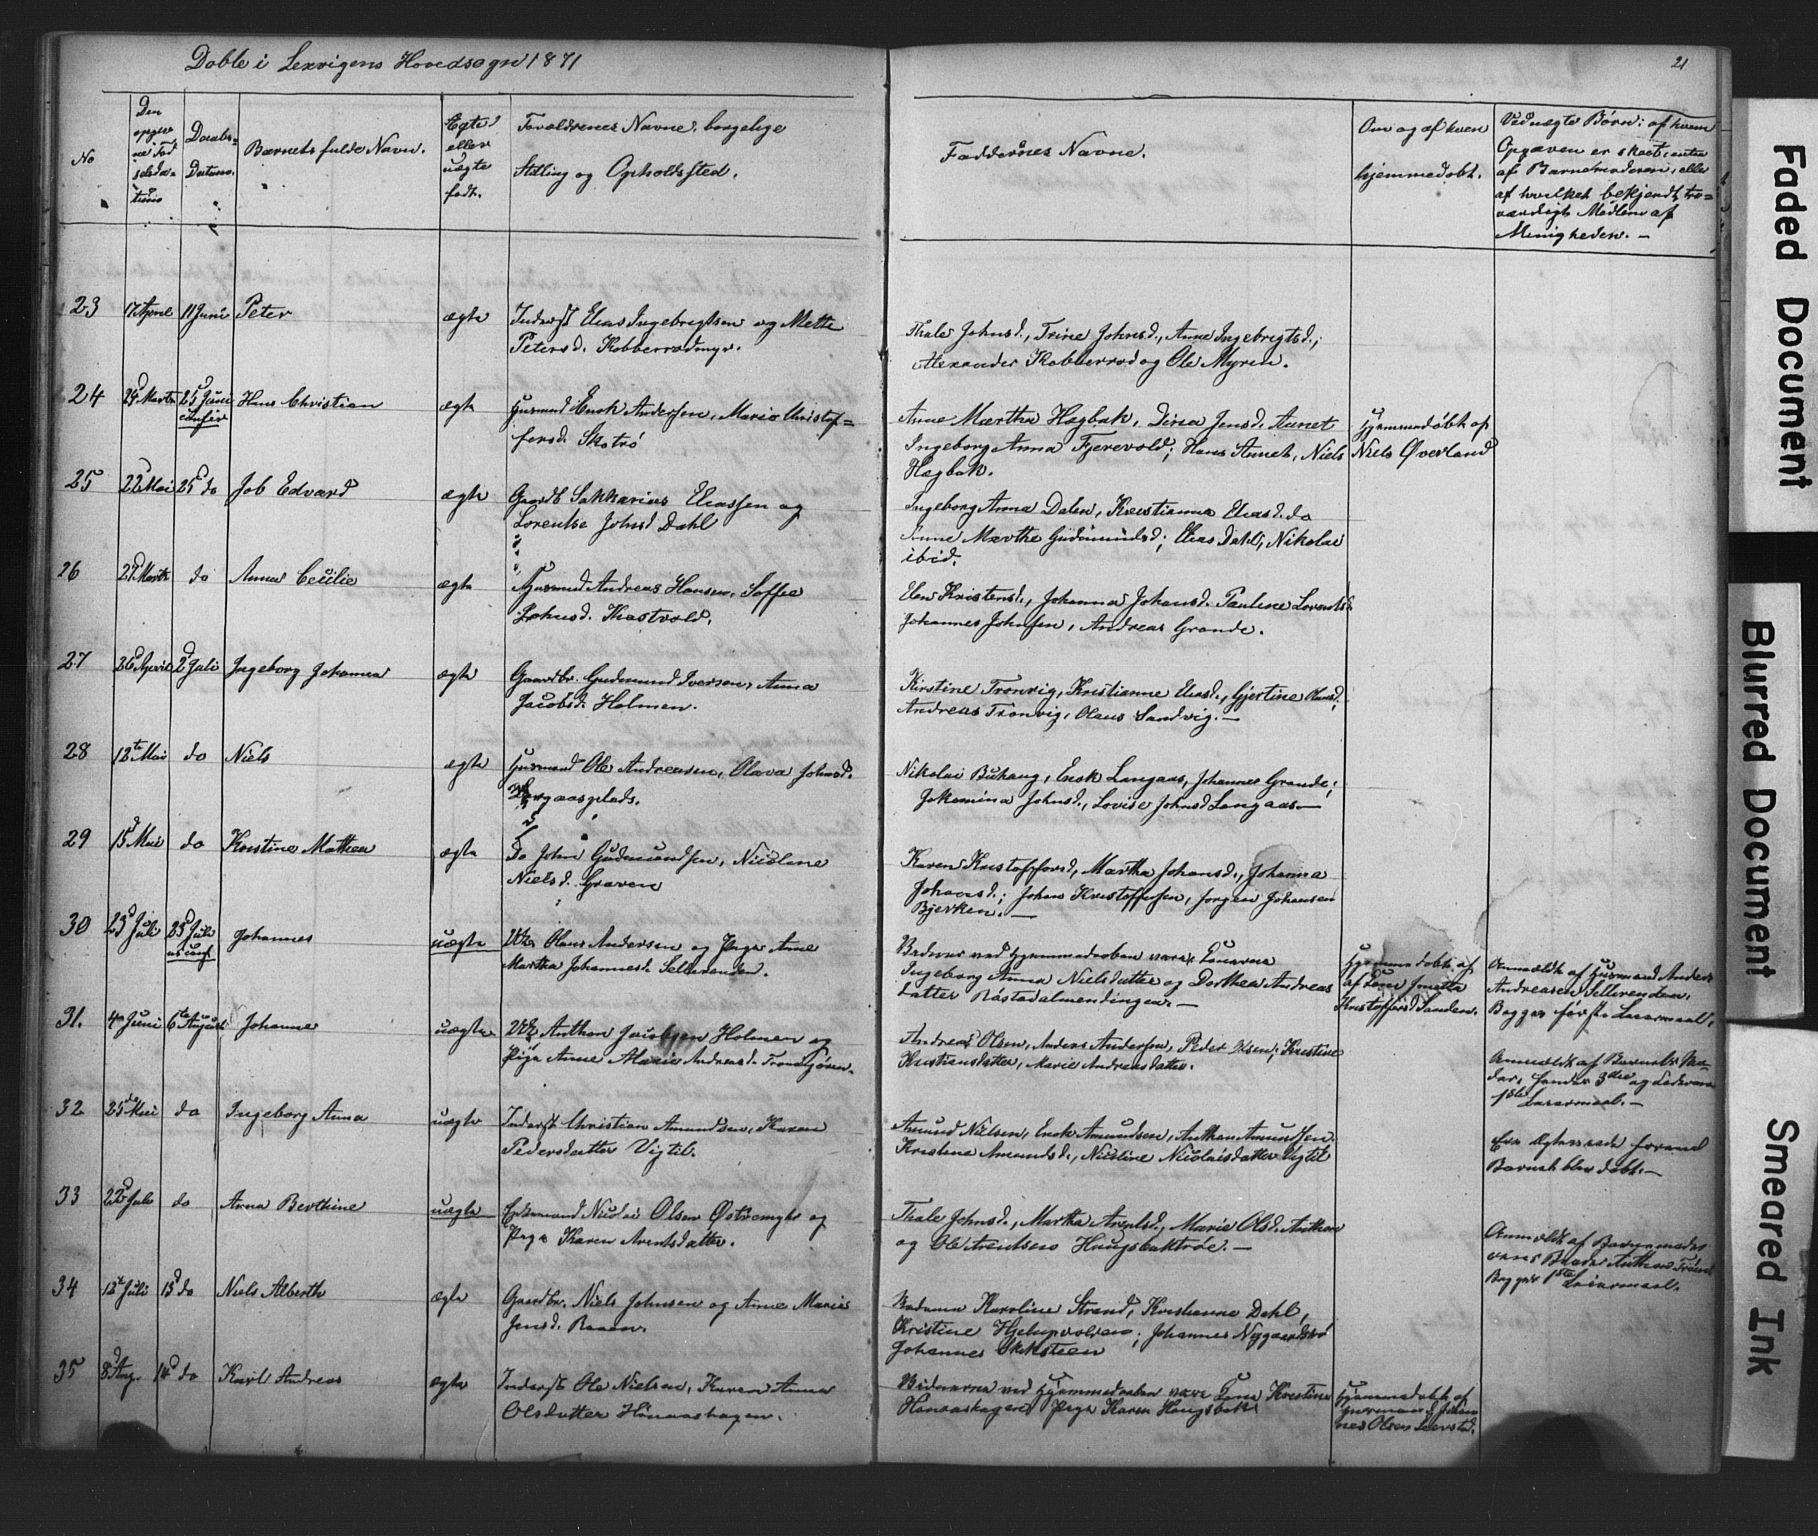 Døbte i Lexvigens Hovedsogn 1871
21
No
Den
opgiv
ne Fød
selsda-
tum
Daabs-
Datum.
Barnets fulde Navn.
Ægte
eller
uægte
født.
Forældrenes Navne, borgelige
Stilling og Opholdssted.
Faddernes Navne.
Om og af hvem
hjemmedøbt.
Ved uægte Børn: af hvem
Opgaven er skeet: enten
af Barnemoderen, eller
af hvilket bekjendt, tro-
værdigt Medlem af
Menigheden. —
23 17 April 11 Juni Peter ægte Inderst Elias Ingebrigtsen og Mette
Petersd. Kobberrødmyr.
Thale Johnsd., Trine Johnsd., Anne Ingebrigtsd.,
Alexander Kobberrød og Ole Myren.
24 24 Marts 25 Juni Hans Christian ægte Husmand Enok Andersen, Marie Christof-
fersd. Skotrø
Anne Martha Hagbak, Dina Jensd. Aunet
Ingeborg Anna Fjerevold; Hans Aunet, Niels
Hagbak.
Hjemmedøbt af
Niels Øverland
25 22 Mai 25 do Job Edvard ægte Gaardb. Sakkarias Eliassen og
Lorentse Johnsd Dahl
Ingeborg Anna Dalen, Kristianna Eliasd. do
Anne Marthe Gudmundsd; Elias Dahl, Nikolai
ibid.
26 27 Marts do Anna Cecilie ægte Husmand Andreas Hansen, Soffie
Johnsd. Kastvold.
Elen Kristensd., Johanna Johansd. Pauline Lorentsd.
Johannes Johnsen, Andreas Grande.
27 26 April 2 Juli Ingeborg Johanna ægte Gaardbr. Gudmund Iversen, Anna
Jacobsd. Holmen.
Kirstine Tronvig, Kristianne Eliasd., Gjertine Hansd,
Andreas Tronvig, Olaus Sandvig. —
28 12te Mai do Niels ægte Husmand Ole Andreasen, Olava Johnsd.
Langaasplads.
Nikolai Buhaug, Enok Langaas, Johannes Grande;
Jokamina Johnsd., Lovise Johnsd Langaas —
29 15 Mai do Kristine Mathea ægte Do John Gudmundsen, Nicoline
Nielsd. Graven
Karen Kristoffersd, Martha Johansd., Johanna
Johansd.; Johan Kristoffersen, Jørgen Johansen
Bjerken. —
30 23 Juli 23 Juli Johannes uægte Ulr Olaus Andersen og Pige Anne
Martha Johannesd. Sellerenden.
Bedrar ved Hjemmedaaben vare
Ingeborg Anna Nielsdatter og Dorthea Andreas
datter Røstadalmendingen. —
Hjemmedøbt af
af Jonetta
Kristoffersd Sanden.
Anmeldt af Husmand Anders
Andreasen Sellerenden.
Begges første Leiermaal.
31. 4 Juni 6te August Johanne uægte Ulr Anthon Jacobsen Holmen og
Pige Anne Marie Andreasd. Trondsjøren.
Andreas Olsen, Anders Andersen, Peder Olsen; Kristine
Kristiansdatter, Marie Andreasdatter.
Anmeldt af Barnets Mo-
der, hendes 3die og
1ste Leiermaal. —
32 25 Mai do Ingeborg Anna uægte Inderst Christian Amundsen, Karen
Pedersdatter Vigtil.
Amund Nielsen, Enok Amundsen, Anthon Amundsen
Kristine Amundsd., Nicoline Nicolaisdatter Vigtil
Barnet blev døbt. —
33 22 Juli do Anna Berthine uægte Enkemand Nicolai Olsen og
Pige Karen Arentsdatter.
Thale Johnsd., Martha Arentsd., Marie Olsd. Anthon
og Ole Arentsen Haugsbaktrøe. —
Anmeldt af Barnemode
rens Broder Anthon
Begges 1ste Leiermaal.
34 12te Juli 13 do Niels Alberth ægte Gaardbr. Niels Johnsen og Anne Marie
Jensd. Raaen.
Madamm Karoline Strand, Kristianne Dahl,
Kristine; Johannes Nygaardstrø
Johannes
35 8 Aug. 14 do Karl Andreas ægte Inderst Ole Nielsen, Karen Anna
Olsdatter Hanaashagen.
Bedrarne ved Hjemmedaaben vare Kristine
Hanaashagen Pige Karen Haugsbak
Hjemmedøbt af
Husmand Johan-
nes Olsen
Faded Document
Blurred Document
Smeared Ink